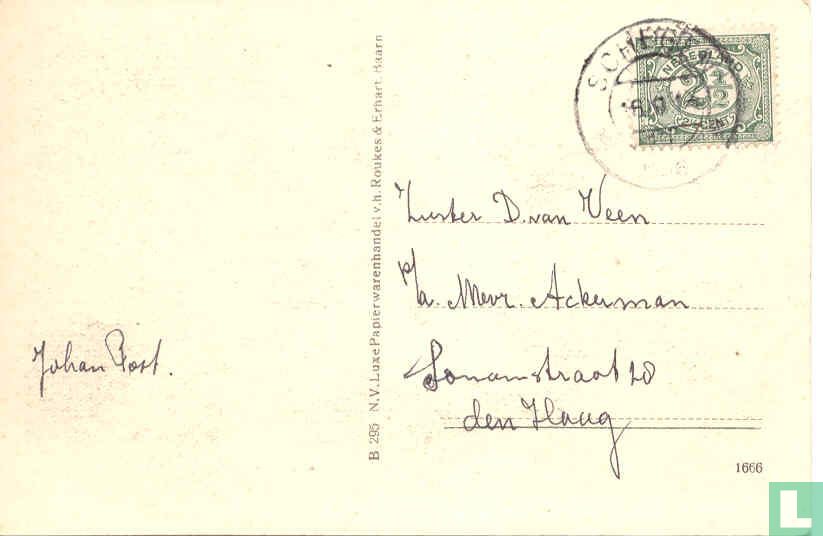 NEDERLAND
2 1/2
CENT
Zuster D. van Veen
p/a. Mevr. Ackerman
20
den Haag
Johan Post.
B 295 N.V. Luxe Papierwarenhandel v.h. Roukes & Erhart, Baarn
1666
L